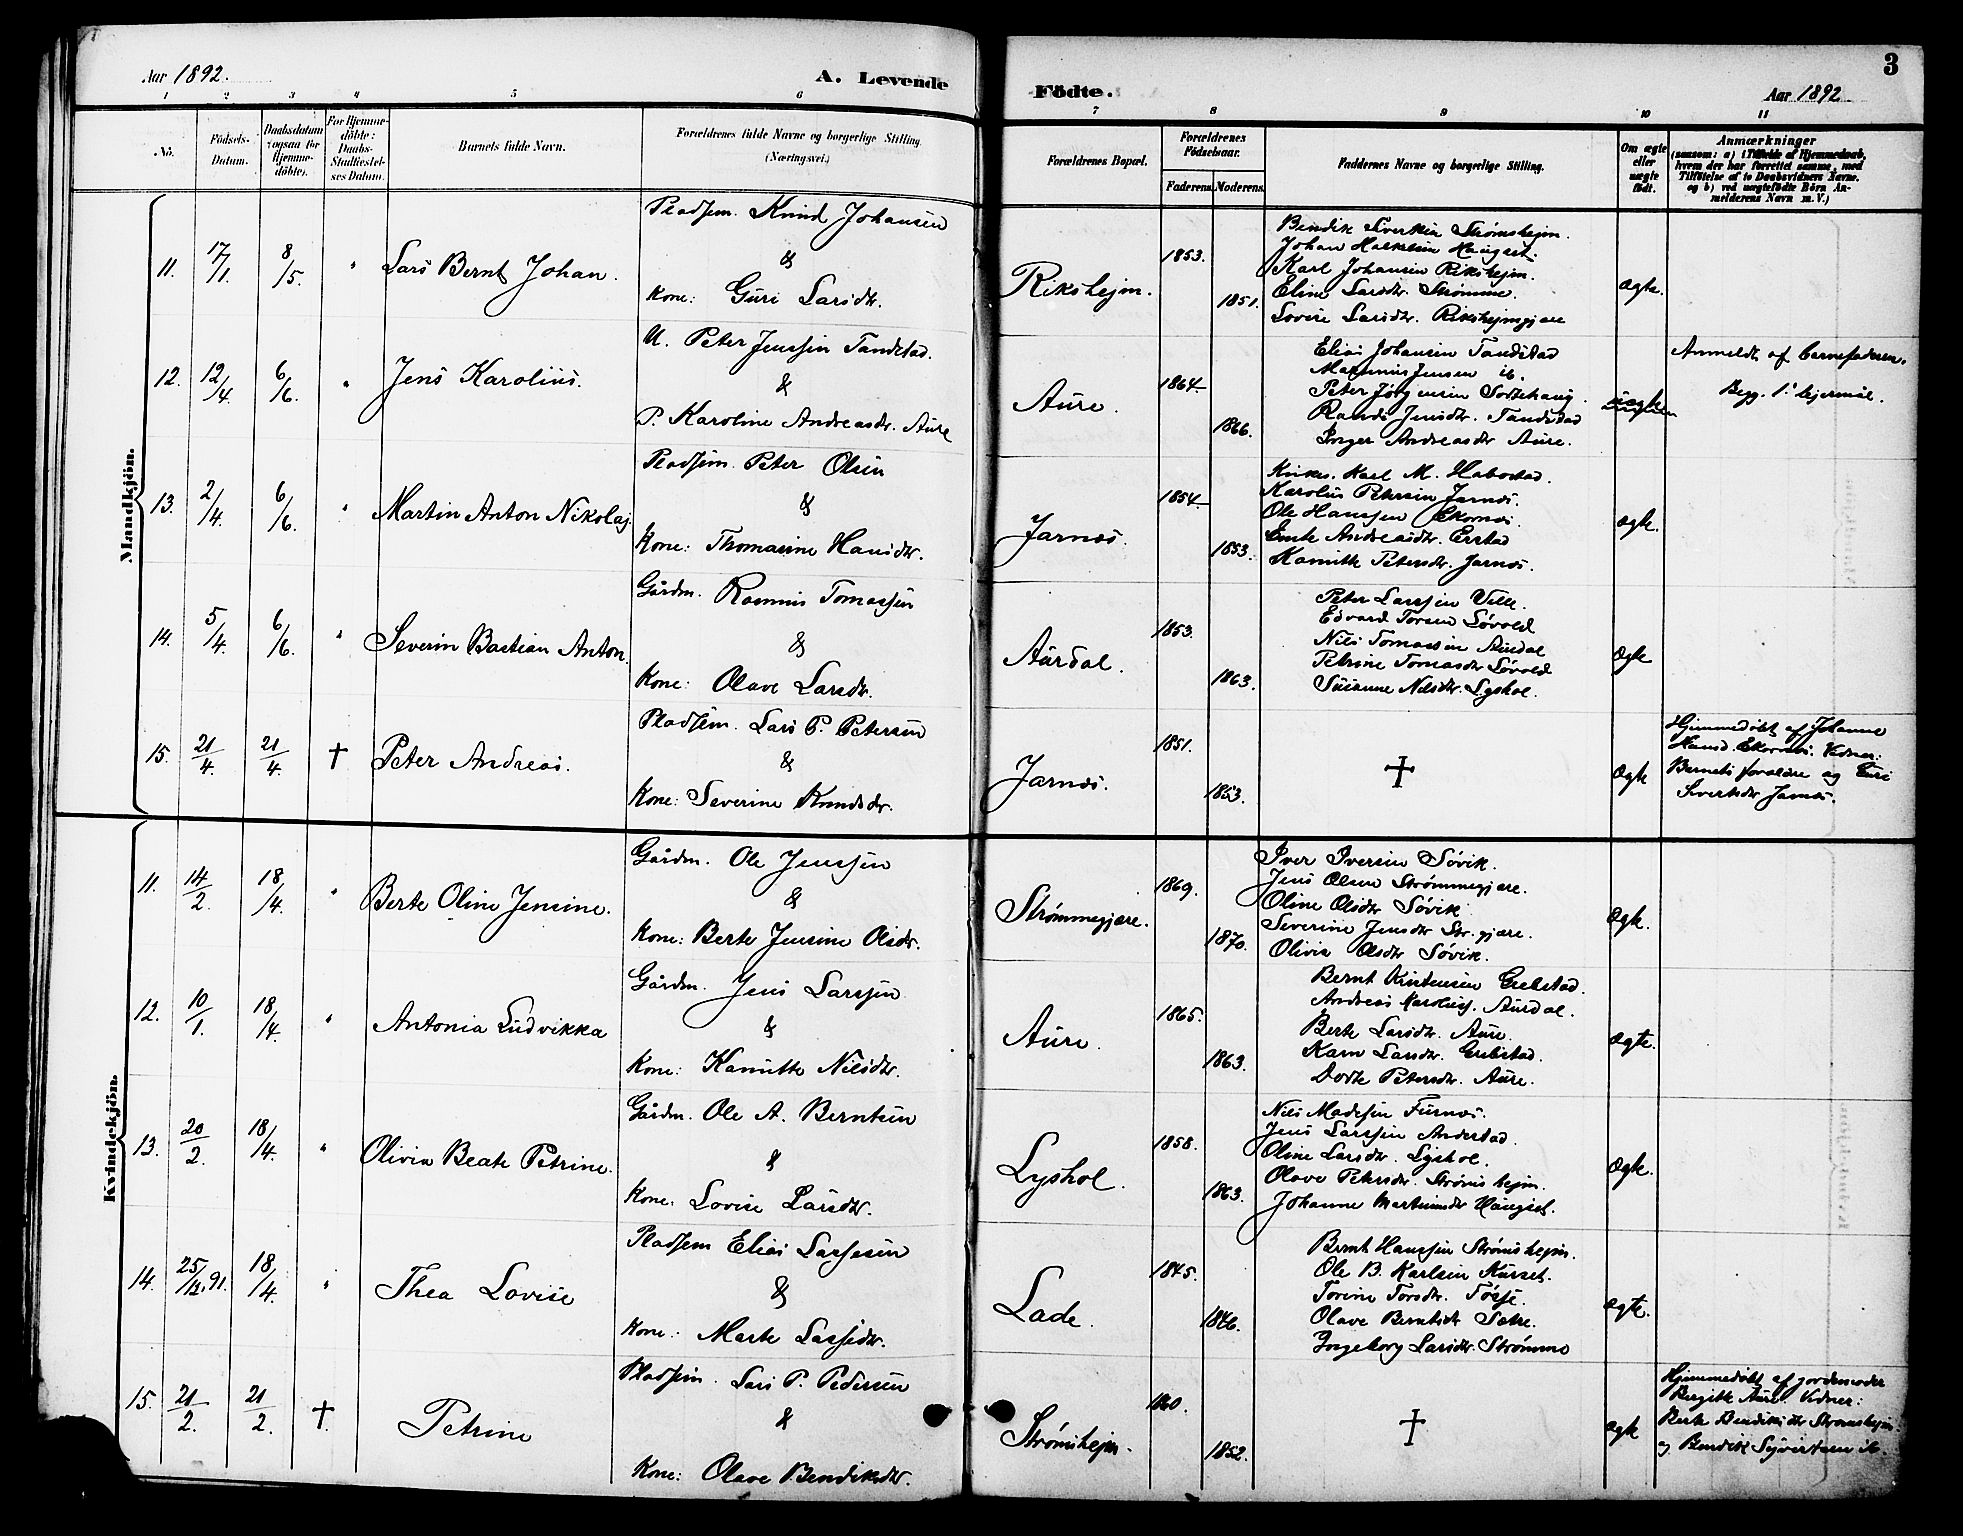 Aar 1892. A. Levende Födte. Aar 1892 3
1 2 3 4 5 6 7 8 9 10 11
No. Födsels-Datum. Daabsdatum (ogsaa for Hjemme-döbte). For Hjemme-döbte: Daabs-Stadfæstel-ses Datum. Barnets fulde Navn. Forældrenes fulde Navne og borgerlige Stilling. (Næringsvei.) Forældrenes Bopæl. Forældrenes Födselsaar. Faderens. Moderens. Faddernes Navne og borgerlige Stilling. Om ægte eller uægte födt. Anmærkninger
(saasom: a) i Tilfælde af Hjemmedaab, hvem der har forrettet samme, med Tilföielse af to Daabsvidners Navne. og b) ved uægtefödte Börn An-melderens Navn m. V.)
Mandkjön.
11. 17/1. 8/5. " Lars Bernt Johan.
Pladsem. Knud Johansen
&
Kone: Guri Larsdtr.
Rikshejm. 1853. 1851.
Bendik Siverksen Strømshejm.
Johan Haraldsen Haugset.
Karl Johansen Rikshejm.
Eline Larsdtr. Strømme.
Lovise Larsdtr. Rikshejmgjære
ægte.
12. 12/4. 6/6. " Jens Karolius.
U. Peter Jenssen Tandstad.
&
P. Karoline Andreasdr. Aure
Aure. 1864 1866.
Elias Johansen Tandstad
Magnus Jensen ib.
Peter Jørgensen Sottehaug.
Rande Jensdtr. Tandstad
Inger Andreasdtr Aure.
uægte
Anmeldt af barnefaderen.
Begg. 1' lejermål.
13. 2/4. 6/6. " Martin Anton Nikolaj
Pladsem. Peter Olsen
&
Kone: Thomasine Hansdtr.
Jarnes. 1854 1853.
Kirkes. Karl M. Habostad.
Karolus Petersen Jarnes.
Ole Hanssen Ekornes.
Emte Andreasdtr. Erstad
Kanutte Petersdtr. Jarnes.
ægte.
14. 5/4. 6/6. " Severin Bastian Anton.
Gårdm. Rasmus Tomassen
&
Kone: Olave Larsdtr.
Aurdal. 1853. 1863.
Peter Larssen Velle.
Edvard Torsen Løvold
Nils Tomassen Aurdal
Petrine Tomasdtr Løvold
Susanne Nilsdtr. Lyshol.
ægte
15. 21/4. 21/4. † Peter Andreas.
Pladsem. Lars P. Petersen
&
Kone: Severine Knudsdr.
Jarnes. 1851. 1853.
†
ægte
Hjemmedøbt af Johanne
Hansd. Ekornes. Vidner:
Barnets forældre og Guri
Sivertsdr Jarnes.
Kvindekjön.
11. 14/2. 18/4. " Berte Oline Jensine.
Gårdm. Ole Jenssen
&
Kone: Berte Jensine Olsdr.
Strømmegjære. 1869. 1870.
Iver Iversen Søvik.
Jens Olsen Strømmegjære.
Oline Olsdtr Søvik
Severine Jensdtr Str.gjære.
Olivia Olsdtr Søvik.
ægte.
12. 10/1. 18/4. " Antonia Ludvikka
Gårdm. Jens Larssen
&
Kone: Kanutte Nilsdtr.
Aure. 1865. 1863.
Bernt Kristensen Grebstad.
Andreas Karolusj. Aurdal.
Berte Larsdtr. Aure.
Karn Larsdtr. Grebstad.
Dorte Petersdtr. Aure.
ægte.
13. 20/2. 18/4. " Olivia Beate Petrine.
Gårdm. Ole A. Berntsen
&
Kone: Lovise Larsdtr.
Lyshol. 1858. 1863.
Nils Madssen Furnes.
Jens Larssen Andestad.
Oline Larsdtr. Lyshol.
Olave Petersdr. Strømshejm.
Johanne Martinusdtr Haugset.
ægte.
14. 25/12.91. 18/4. " Thea Lovise
Pladsem Elias Lassesen
&
Kone: Marte Lassedtr.
Lade. 1845. 1846.
Bernt Hanssen Strømshejm.
Ole B. Karlsen Kurset.
Torine Torsdtr. Tøsse.
Olave Berntsdr Sætre.
Ingeborg Larsdtr. Strømme
ægte.
15. 21/2. 21/2. †. Petrine
Pladsem. Lars P. Pedersen
&
Kone: Olave Bendiksdtr.
Strømshejm. 1860. 1852.
†
ægte
Hjemmedøbt af jordemoder
Birgitte Aure. Vidner:
Berte Bendiksdtr Strømshejm
og Bendik Syvertsen ib.